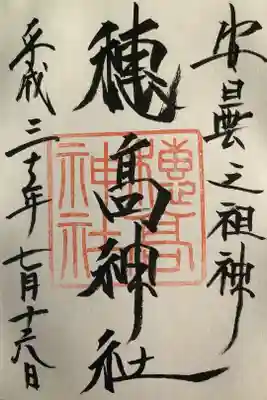 安曇之祖神
穂髙神社
穂高
神社
平成三十年七月十六日